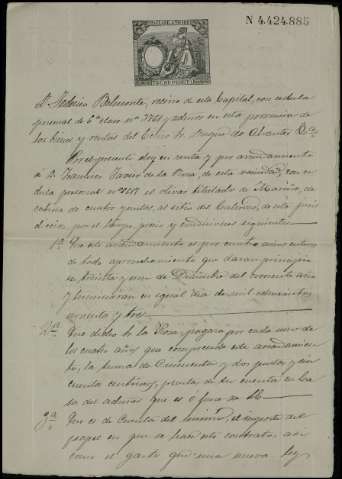 N 4.424.885
D. Federico Belmonte, vecino de esta Capital, con cedula
personal de 6ª clase nº 7751 y admor en esta provincia de
los bienes y rentas del Excmo Sr. Duque de Abrantes &ª
Por el presente doy en renta y por arrendamiento
á D. Francisco Javier de la Rosa, de esta vecindad, con ce-
dula personal nº el olivar titulado de
cabida de cuatro yuntas, al sitio del de esta juris
diccion, por el tiempo, precio y condiciones siguientes
1ª Que este arrendamiento es por cuatro años enteros
de todo aprovechamiento que daran principio
en treinta y uno de Diciembre del corriente año
y terminaran en igual dia de mil ochocientos
noventa y tres
2ª Que dicho Sr de la Rosa, pagará por cada uno de
los cuatro años que comprende este arrendamien-
to, la suma de Cincuenta y dos pesetas y cin
cuenta centimos, puesta de su cuenta en Ca
sa del admor que es ó fuere de SE.
3ª Que es de Cuenta del mismo, el importe del
papel en que se hace este contrato, asi
como el gasto que una nueva ley